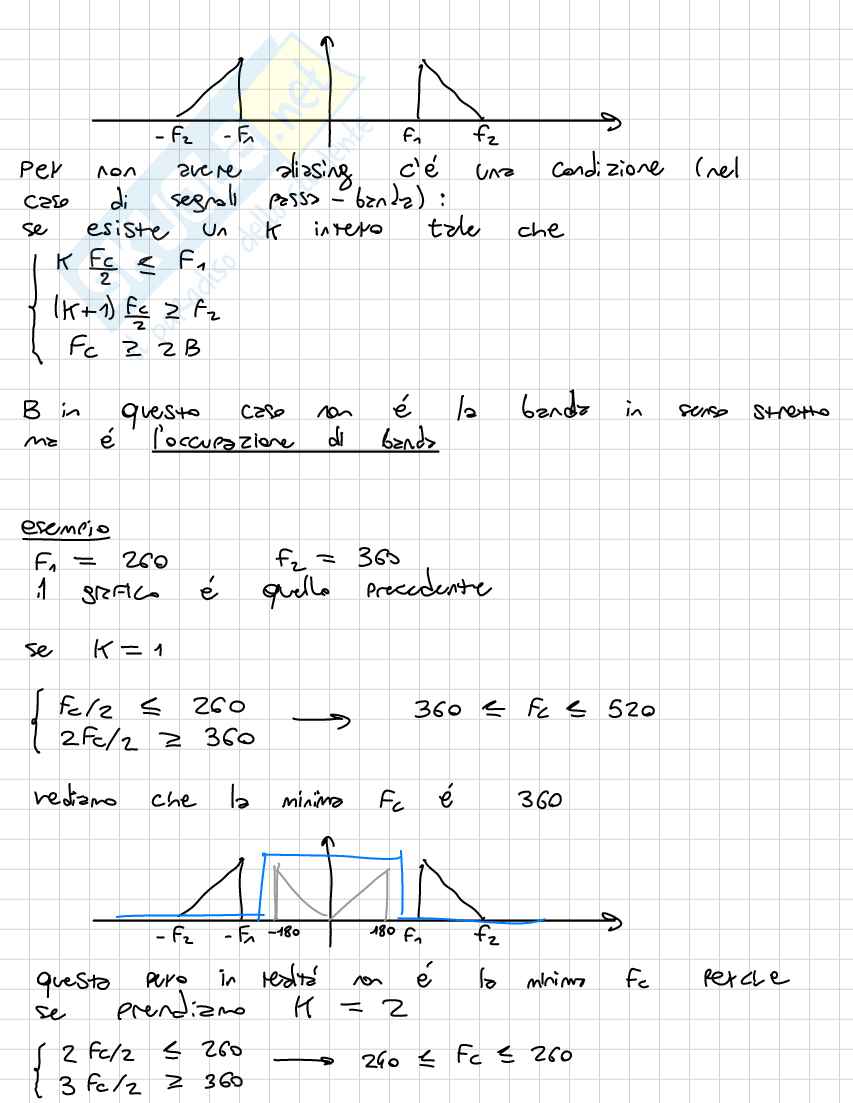 -F2 -F1 F1 F2
Per non avere aliasing c'é una condizione (nel
caso di segnali passa-banda):
se esiste un K intero tale che
K Fc/2 ≤ F1
(K+1) Fc/2 ≥ F2
Fc ≥ 2B
B in questo caso non é la banda in senso stretto
ma é l'occupazione di banda
esempio
F1 = 260 F2 = 360
il grafico é quello precedente
se K=1
Fc/2 ≤ 260 → 360 ≤ Fc ≤ 520
2Fc/2 ≥ 360
vediamo che la minima Fc é 360
-F2 -F1 -180 180 F1 F2
questa pero in realtá non é la minima Fc perche
se prendiamo K = 2
2 Fc/2 ≤ 260 → 240 ≤ Fc ≤ 260
3 Fc/2 ≥ 360